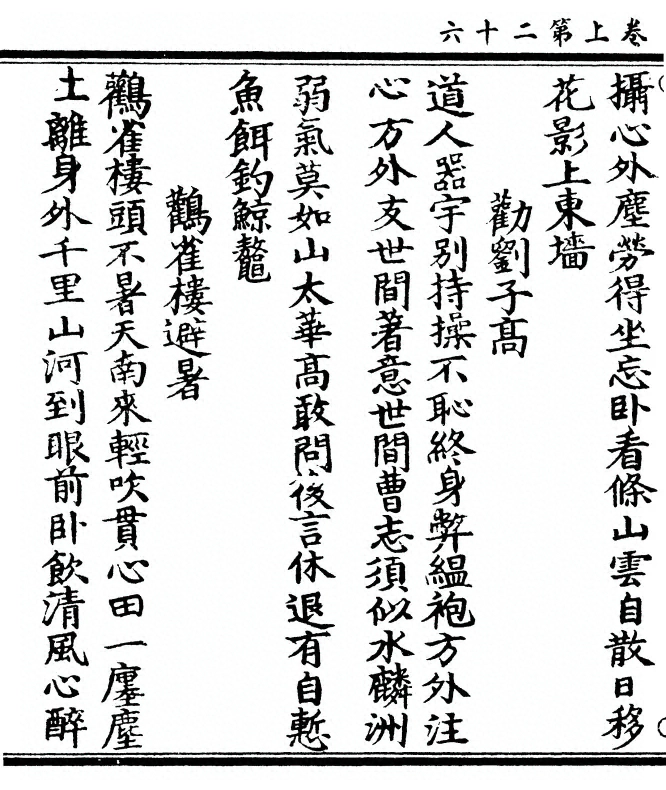 卷上第二十六
攝心外塵勞得坐忘卧看條山雲自散日移
花影上東墻
勸劉子髙
道人器宇别持操不恥終身弊緼袍方外注
心方外支世間著意世間曹志須似水麟洲
弱氣莫如山太華髙敢問後言休退有自慙
魚餌釣鯨鼇
鸛雀樓避暑
鸛雀樓頭不暑天南來輕吹貫心田一廛塵
土離身外千里山河到眼前卧飲清風心醉